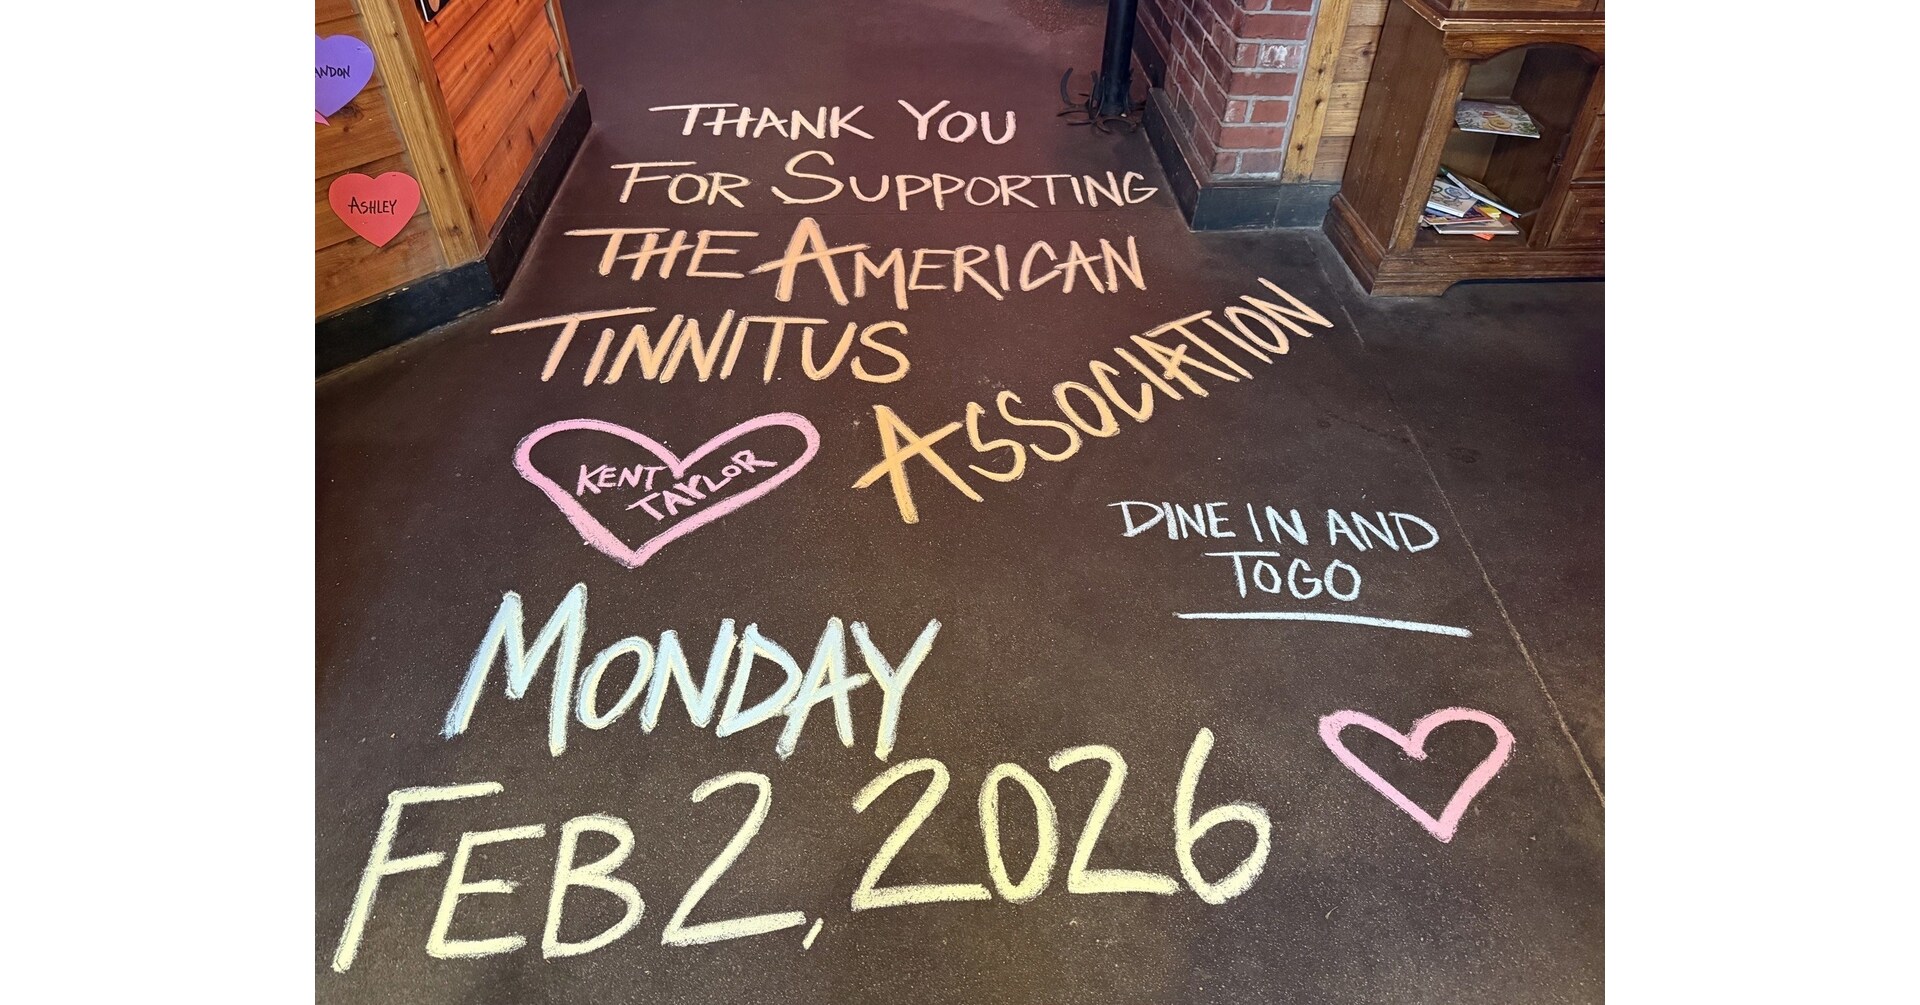 ANDON
ASHLEY
THANK YOU
FOR SUPPORTING
THE AMERICAN
TINNITUS
ASSOCIATION
KENT
TAYLOR
DINE IN AND
TOGO
MONDAY
FEB 2, 2026